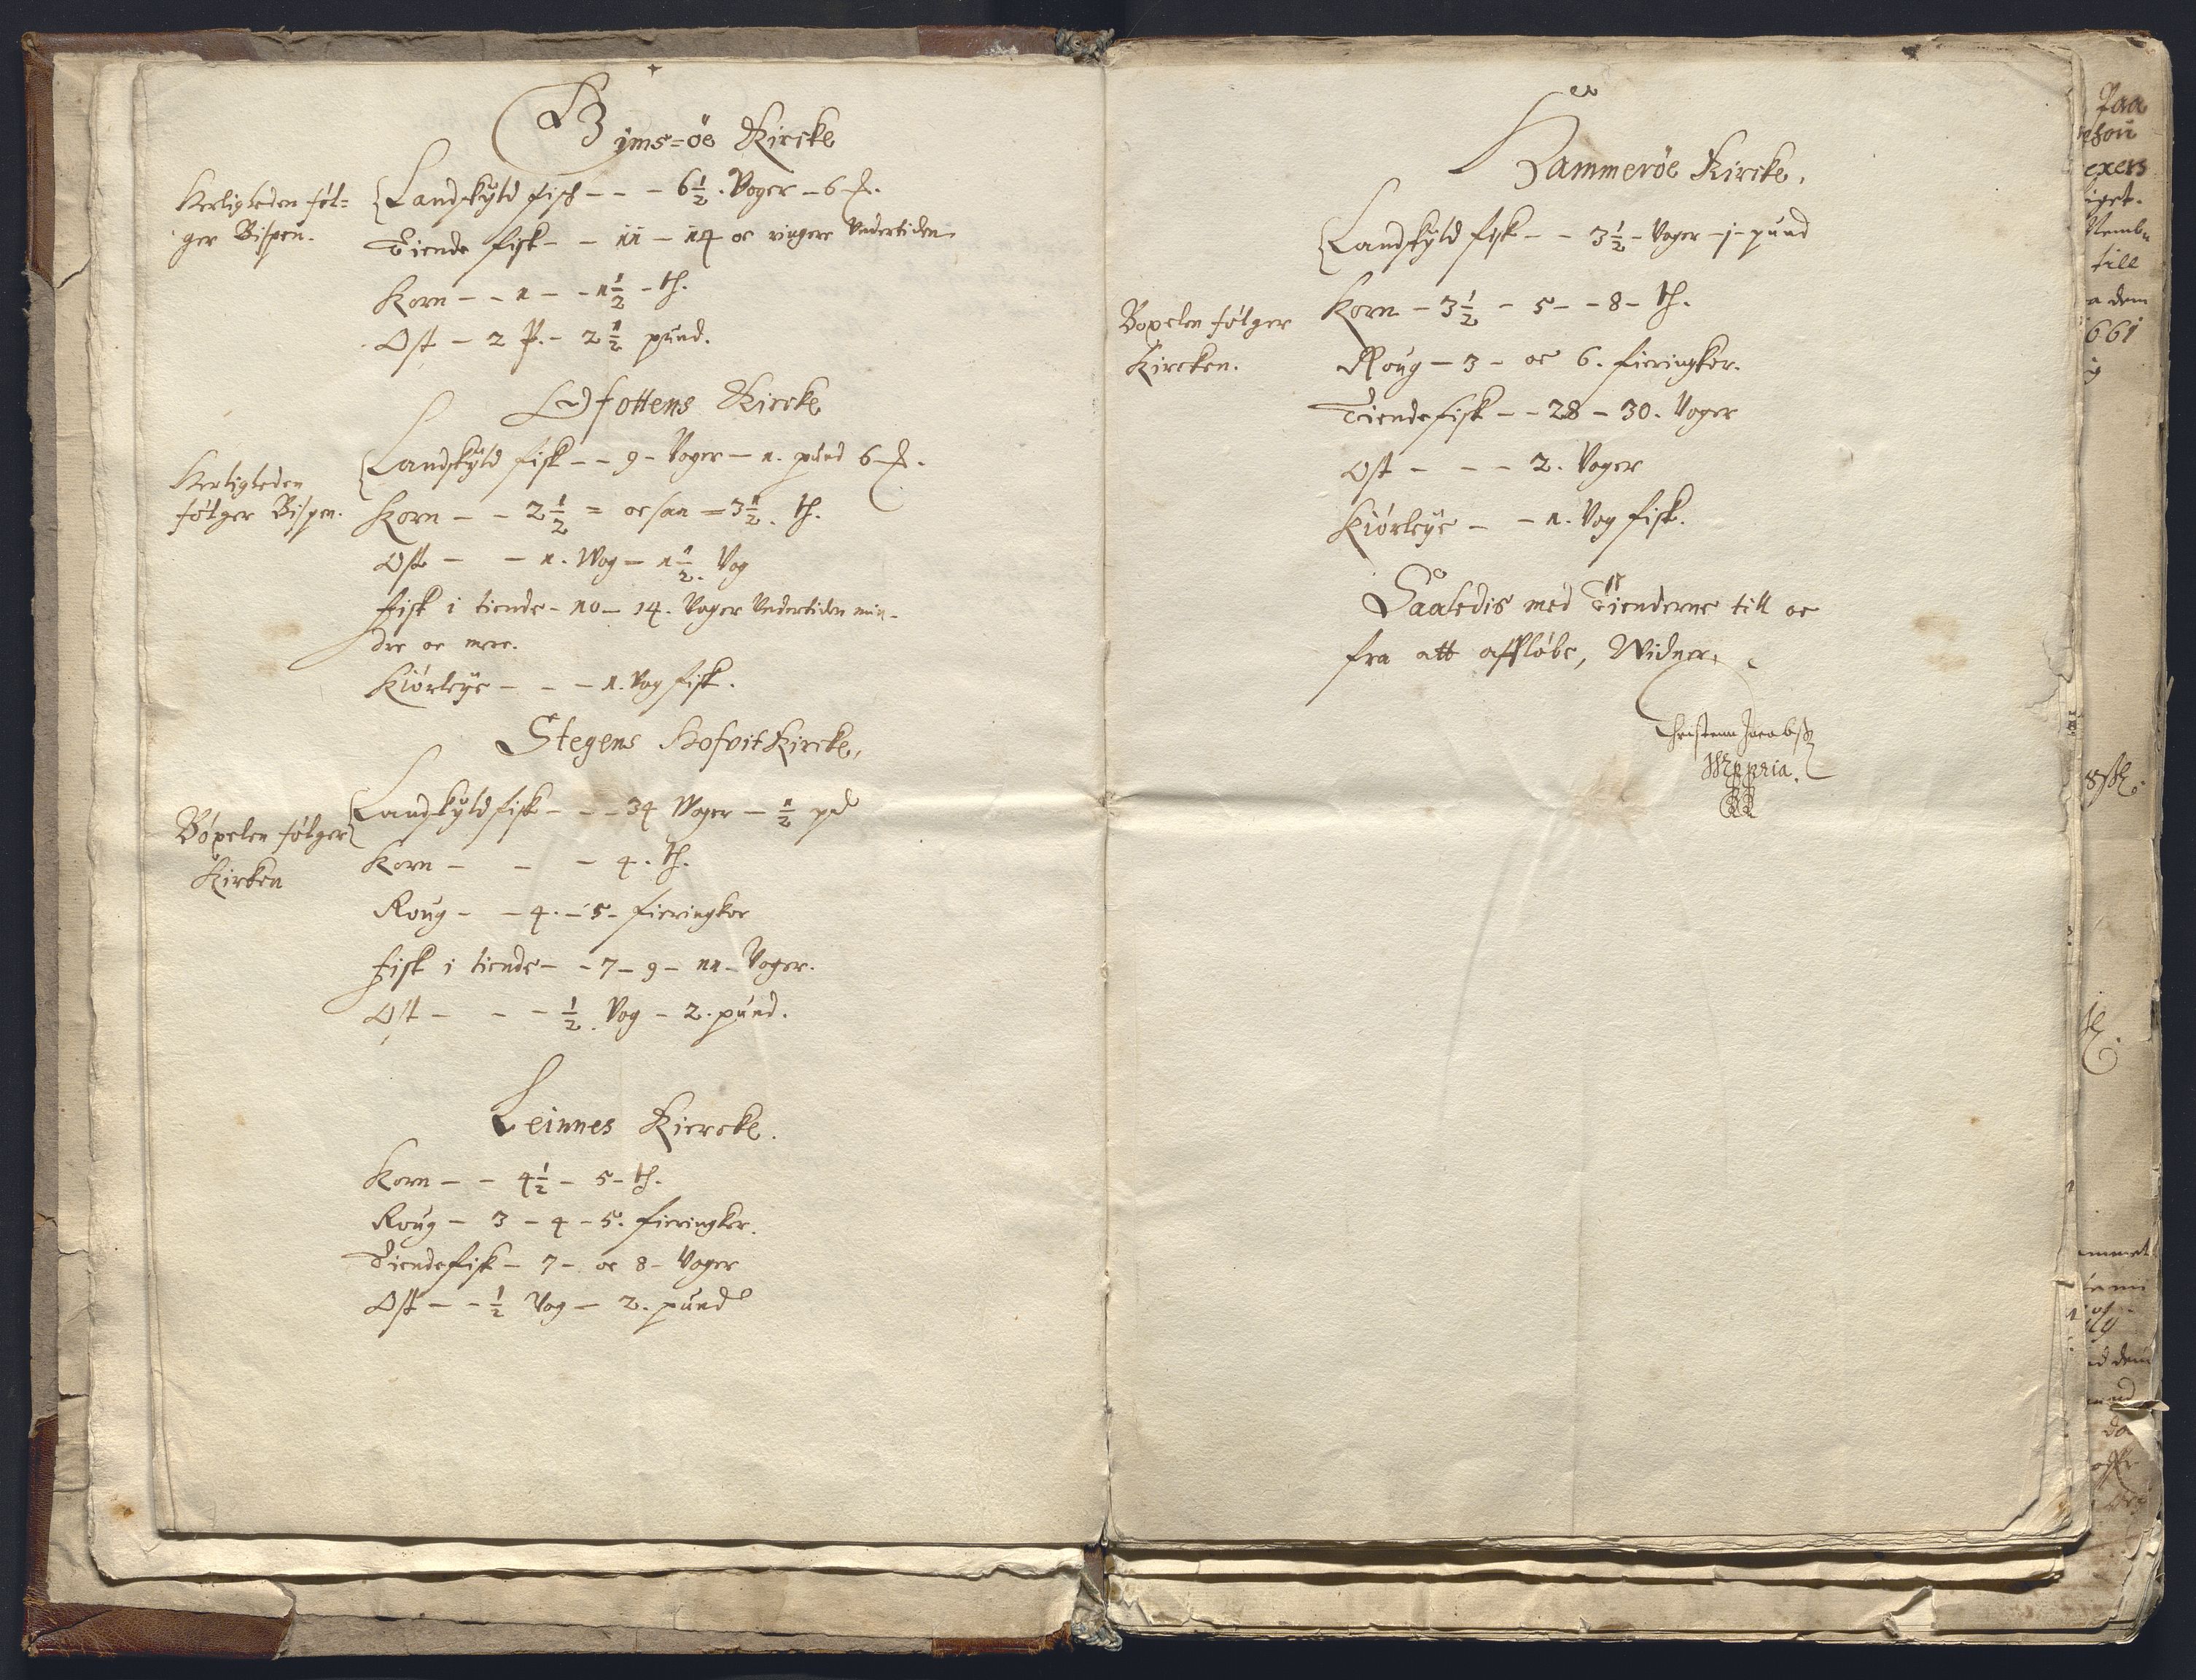 Gims=öe Kircke
Herligheden föl=
ger Bispen.
Landskyld fisk - - - 6½. Voger - 6
Tiende fisk - - 11 - 14 oc ringere Undertiden
Korn - - 1 - - 1½ - th.
Ost - 2 P. - 2½ pund.
Ofottens Kircke
Herligheden
fölger Bispen.
Landskyld fisk - - 9 - Voger - 1. pund 6
Korn - - 2½ = oc saa = 3½. th.
Ost - - 1. Wog - 1½. Vog
fisk i tiende - 10 - 14. Voger Undertiden min-
dre oc mere.
Kiörleye - - - 1. Vog fisk.
Stegens Hofvit Kircke,
Böxelen fölger
Kirken
Landskyld fisk - - - 34 Woger - ½ pd
Korn - - - 4. th.
Roug - - 4. - 5 - fieringker
fisk i tiende - - 7 - 9 - 11 - Voger.
Ost - - - ½. Vog - 2. pund.
Leinnes Kiercke.
Korn - - 4½ - 5 - th.
Roug - 3 - 4 - 5. fieringker.
Tiendefisk - 7 - oc 8 - Voger
Ost - - ½ Vog - 2. pund
Hammeröe Kircke,
Landskyld fisk - - 3½ - Voger - j - pund
Boxelen fölger
Kircken.
Korn - 3½ - 5 - - 8 - th.
Roug - 3 - oc 6. fieringker.
Tiendefisk - - 28 - 30. Voger
Ost - - - 2. Voger
Kiörleye - - 1. Vog fisk.
Saaledis med Tienderne till oc
fra att affløbe, Widner,
Christenn Jacobß
Mppria.
Paa
exers
iget.
till
a dem
661